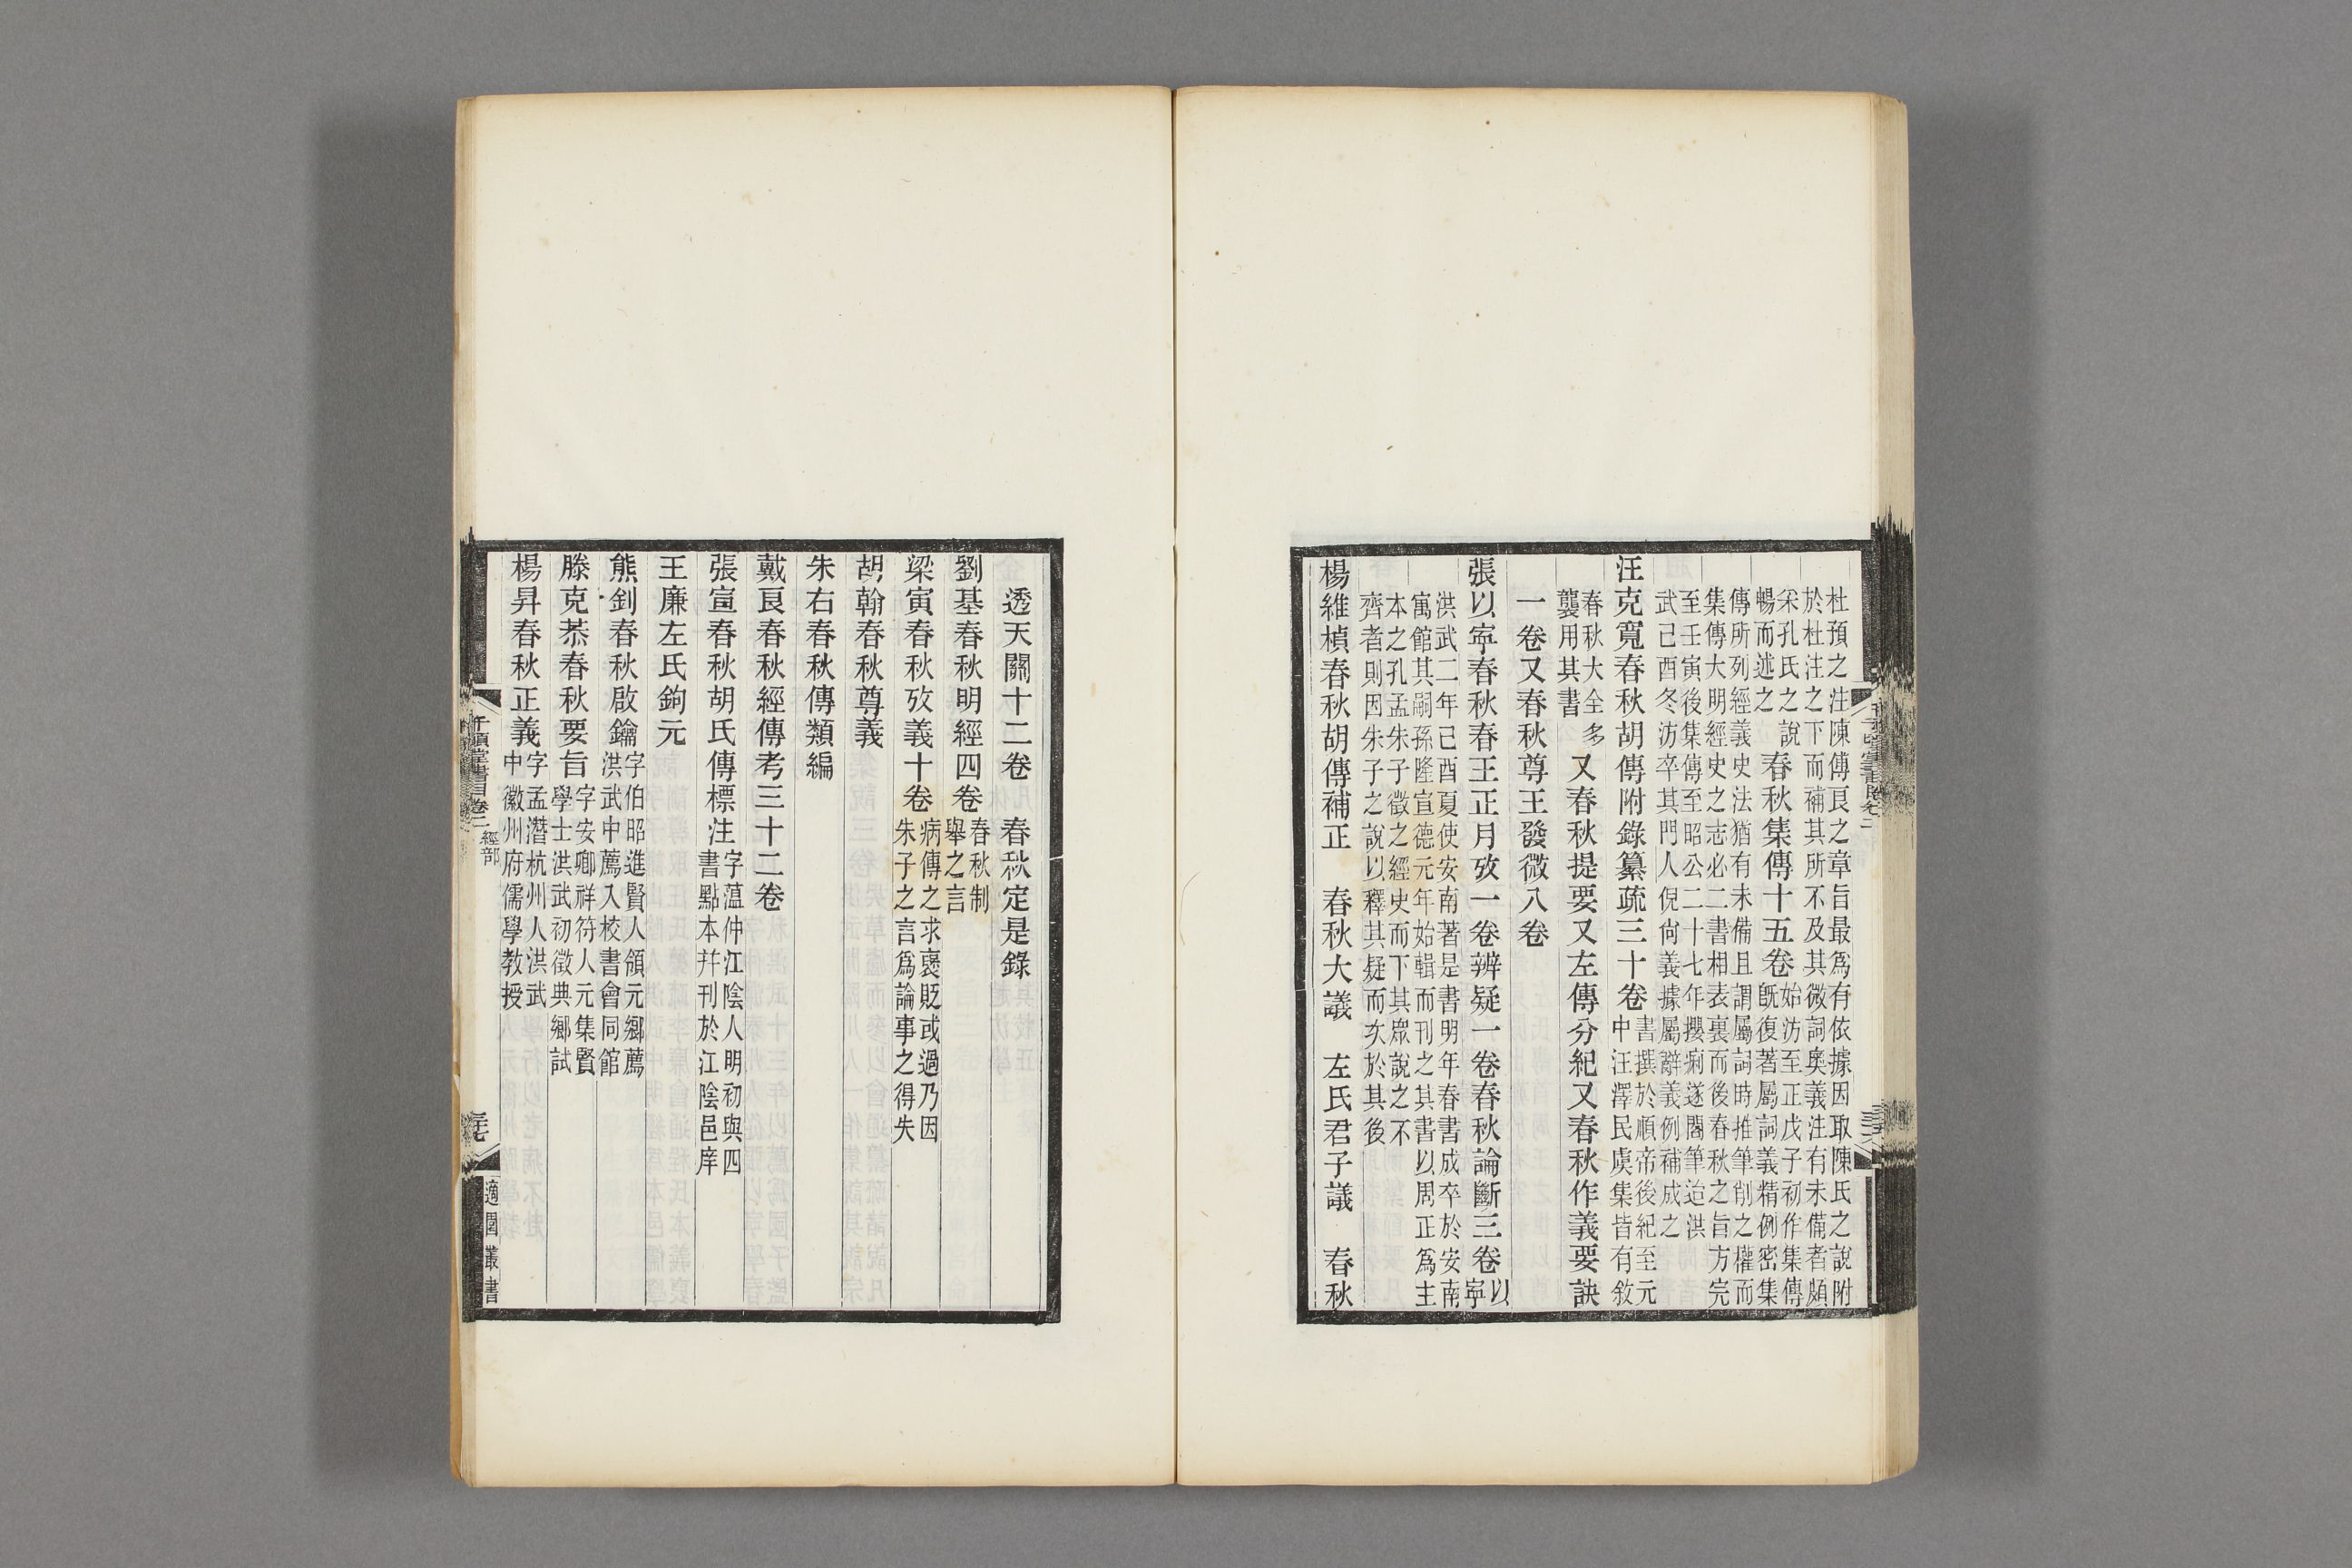 杜預之注陳傅良之章旨最爲有依據因取陳氏之說附
於杜注之下而補其所不及其微詞奥義注有未備者頗
采孔氏之說
暢而述之
春秋集傳十五卷
始汸至正戊子初作集傳
旣復著屬詞義精例密集
傳所列經義史法猶有未備且謂屬詞時推筆削之權而
集傳大明經史之志必二書相表裏而後春秋之旨方完
至壬寅後集傳至昭公二十七年攖痾遂閣筆迨洪
武己酉冬汸卒其門人倪尙義據屬辭義例補成之
汪克寬春秋胡傳附錄纂疏三十卷
書撰於順帝後紀至元
中汪澤民虞集皆有敘
春秋大全多
襲用其書
又春秋提要又左傳分紀又春秋作義要訣
一卷又春秋尊王發微八卷
張以寧春秋春王正月攷一卷辨疑一卷春秋論斷三卷
以
寧
洪武二年己酉夏使安南著是書明年春書成卒於安南
寓館其嗣孫隆宣德元年始輯而刊之其書以周正爲主
本之孔孟朱子徵之經史而下其眾說之不
齊者則因朱子之說以釋其疑而次於其後
楊維楨春秋胡傳補正　春秋大議　左氏君子議　春秋
透天關十二卷　春秋定是錄
劉基春秋明經四卷
春秋制
舉之言
梁寅春秋攷義十卷
病傳之求褒貶或過乃因
朱子之言爲論事之得失
胡翰春秋尊義
朱右春秋傳類編
戴良春秋經傳考三十二卷
張宣春秋胡氏傳標注
字藻仲江陰人明初與四
書點本幷刊於江陰邑庠
王廉左氏鉤元
熊釗春秋啟鑰
字伯昭進賢人領元鄉薦
洪武中薦入校書會同館
滕克恭春秋要旨
字安卿祥符人元集賢
學士洪武初徵典鄉試
楊昇春秋正義
字孟潛杭州人洪武
中徽州府儒學教授
千頃堂書目卷二 經部
適園叢書